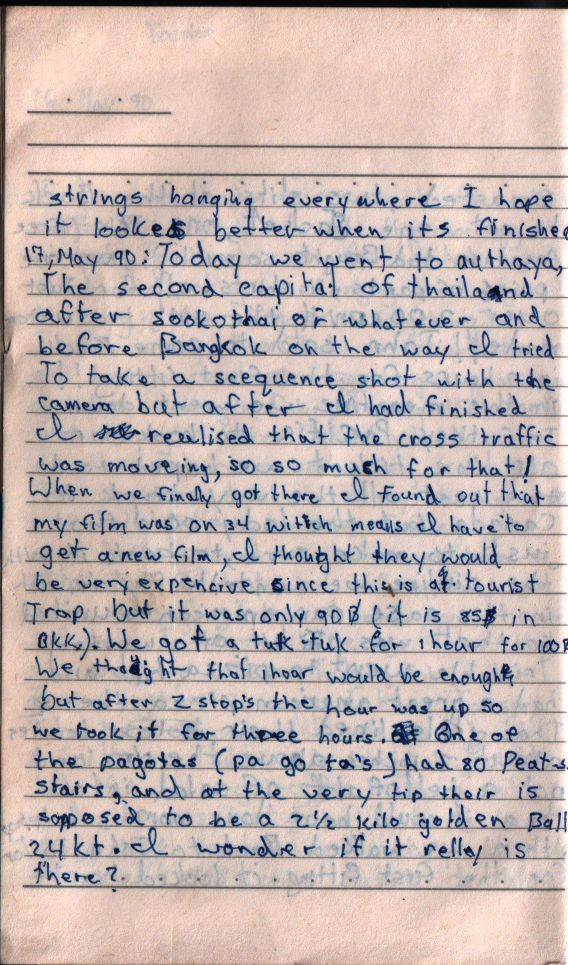 strings hanging everywhere I hope
it lookes better when its finished
17, May 90: Today we went to authaya,
The second capital of thailand
after sookothai or whatever and
before Bangkok on the way I tried
To take a scequence shot with the
camera but after I had finished
I realised that the cross traffic
was moveing, so so much for that!
When we finally got there I found out that
my film was on 34 wittch means I have to
get a new film, I thought they would
be very expencive since this is a tourist
Trap but it was only 90฿ (it is 85฿ in
BKK.). We got a tuk-tuk for 1 hour for 100฿
We thought that 1 hoar would be enough,
but after 2 stop's the hour was up so
we took it for three hours. One of
the pagotas (pa go ta's) had 80
stairs, and at the very tip their is
sopposed to be a 2½ kilo golden Ball
24kt. I wonder if it relley is
there?